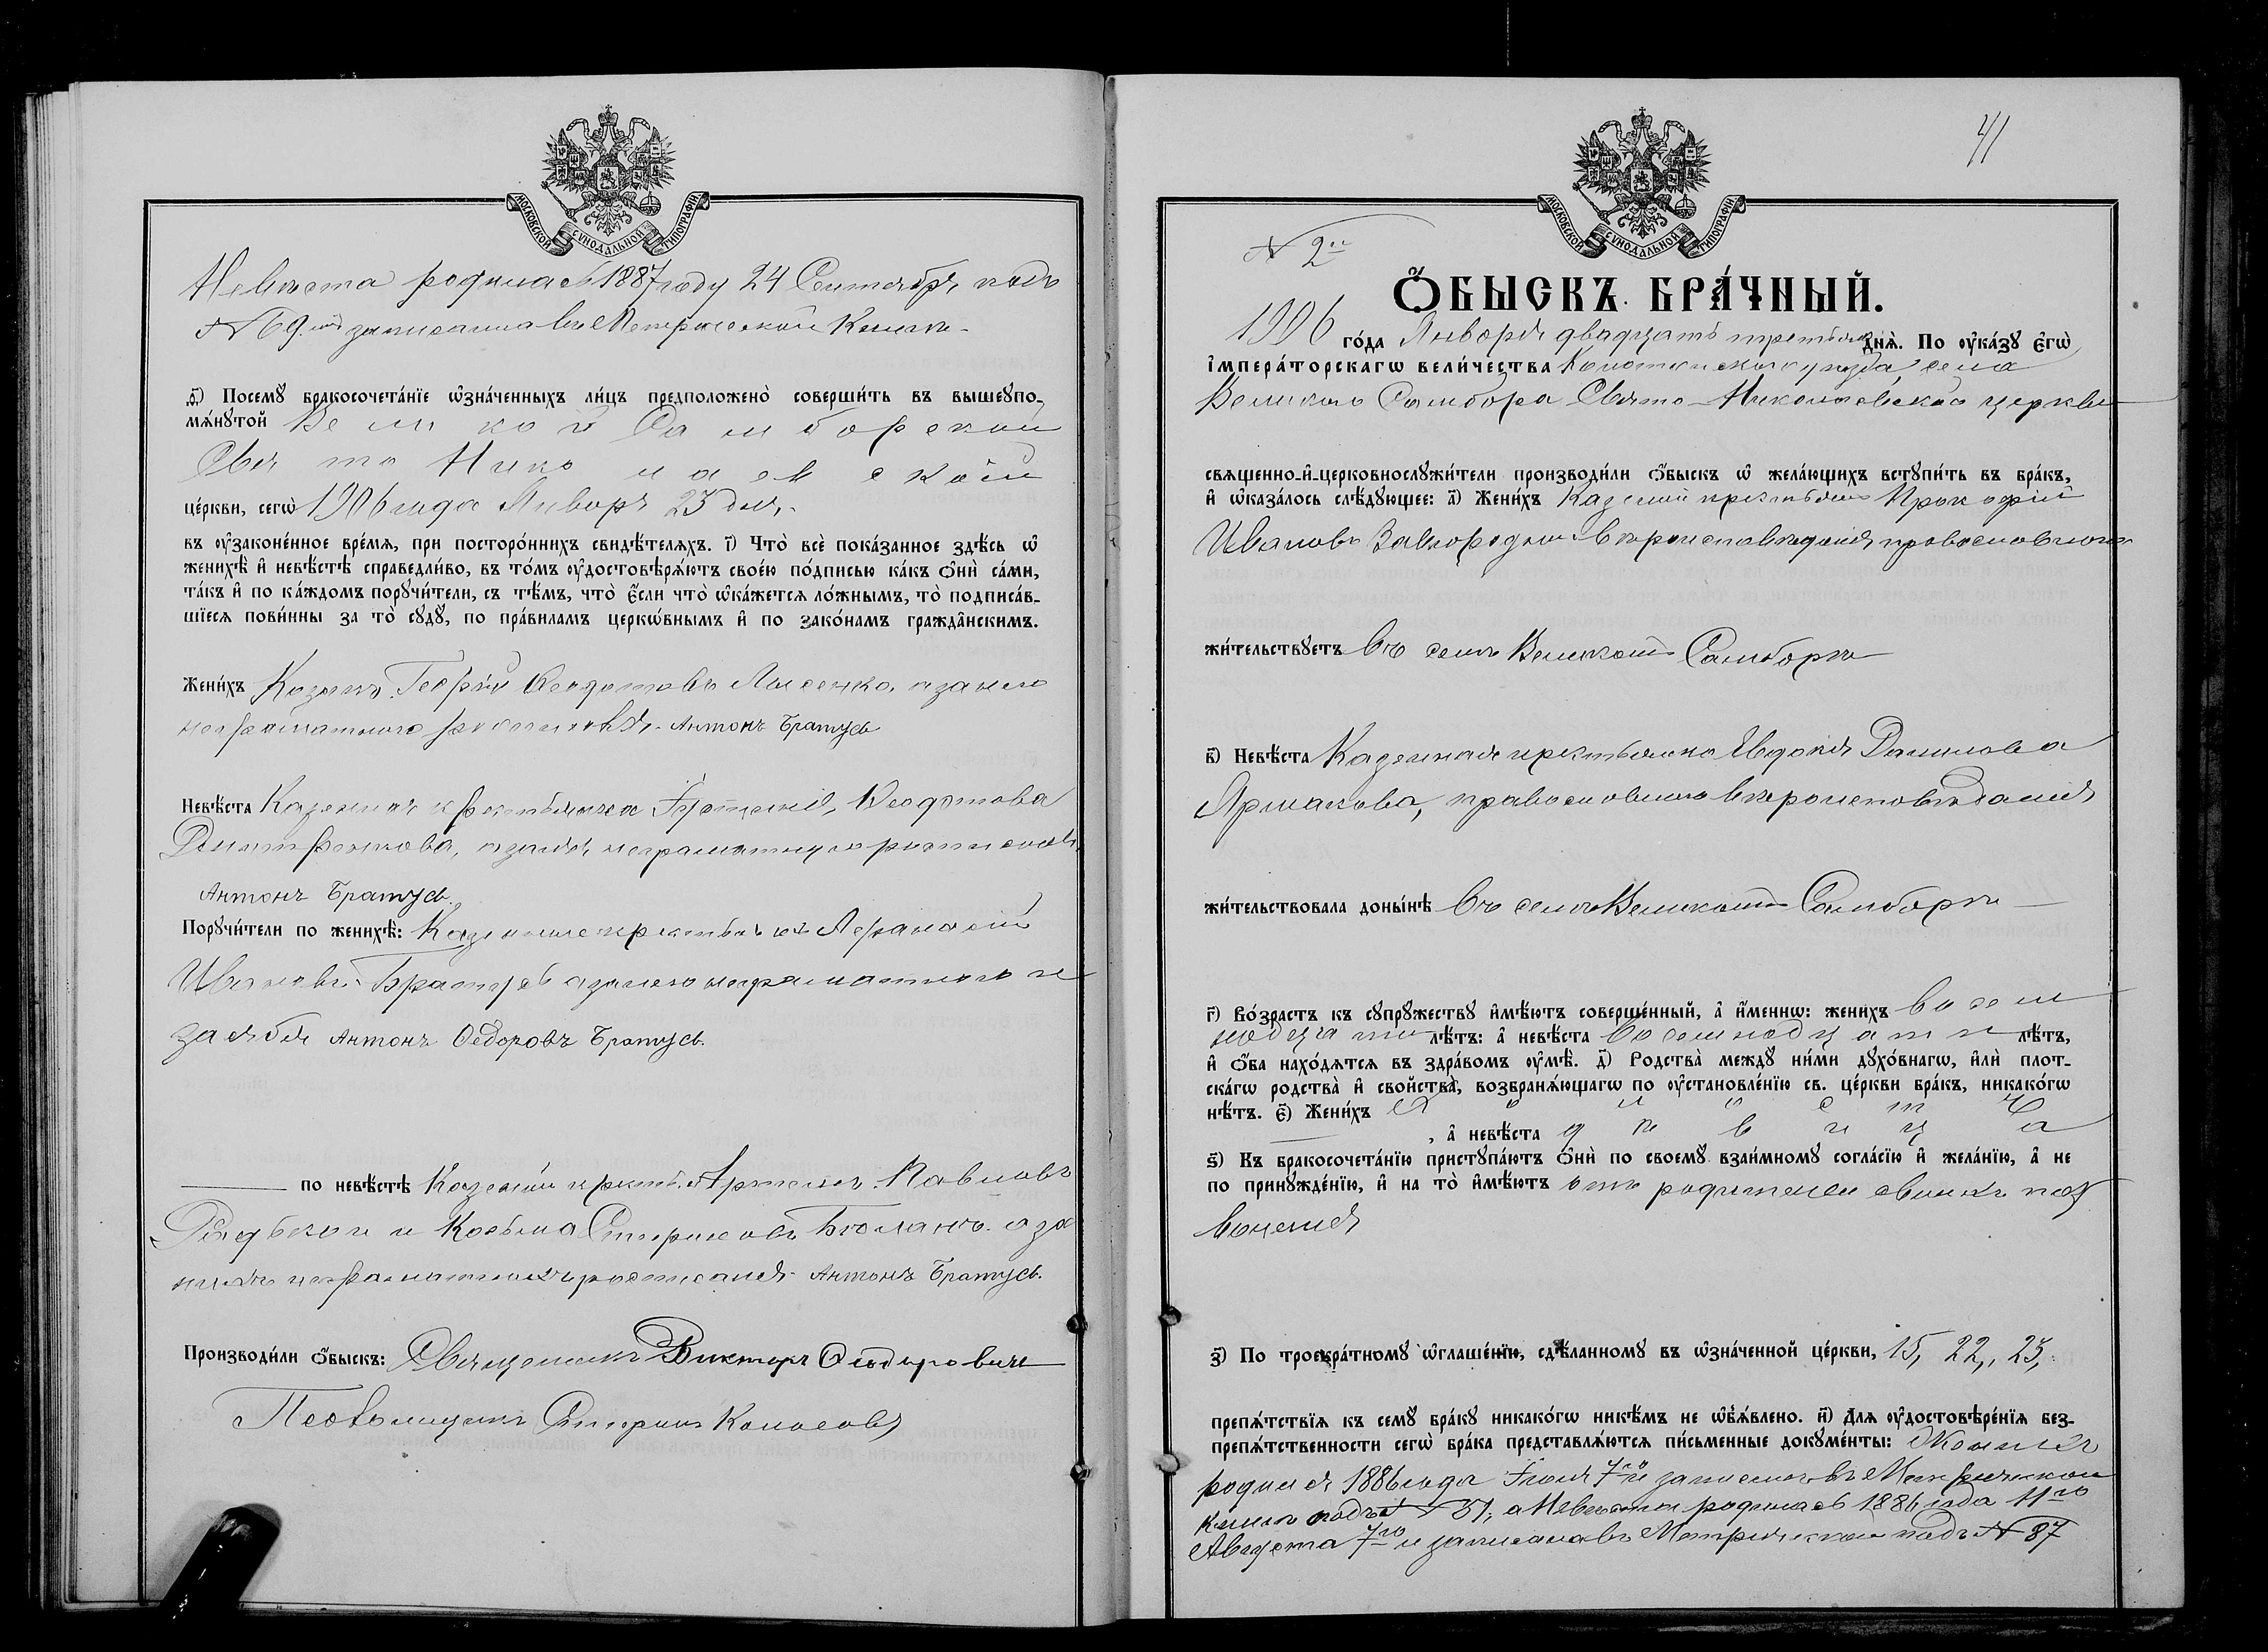 МОСКОВСКОЙ СѴНОДАЛЬНОЙ ТИПОГРАФІИ
Невѣста родилась 1887 году 24 Сентября подъ
№ 69 записанна въ Метрической Книги
Ѳ҃) Посемꙋ бракосочета́нїе ѡзна́ченныхъ ли́цъ предположено̀ соверши́ть въ вышеꙋпо-
мѧ́нꙋтой Великой Самборской
Свято Николаевской
це́ркви, сегѡ̀ 1906 года Январ 23 дня
въ ᲂу҆законе́нное вре́мѧ, при посторо́ннихъ свидѣ́телѧхъ. І҃) Что̀ всѐ пока́занное здѣ́сь ѡ҆
женихѣ̀ и҆ невѣ́стѣ справедли́во, въ то́мъ ᲂу҆достовѣрѧ́ютъ свое́ю по́дписью ка́къ ѻ҆нѝ са́ми,
та́къ и҆ по ка́ждомъ порꙋчи́тели, съ тѣ́мъ, что̀ є҆́сли что̀ ѡ҆ка́жетсѧ ло́жнымъ, то̀ подписа́в-
шїесѧ пови́нны за то̀ сꙋдꙋ̀, по пра́виламъ церкѡ́внымъ и҆ по зако́намъ гражда̂нскимъ.
Жени́хъ Козакъ Георгій Ѳеодотовъ Лисенко, а за него
неграматного росписався Антонъ Братусь
Невѣ́ста Казенная крестьянка Ѳеодотова
а за ея неграматную росписався
Антонъ Братусь.
Порꙋчи́тели по женихѣ̀: Казенные крестьяне Афанасій
Ивановъ Братусь а за него неграматного и
за себя Антонъ Ѳедоровъ Братусь.
по невѣ́стѣ Казеный крест. Артемъ Павловъ
и Косьма а за
нихъ неграматныхъ росписался Антонъ Братусь.
Производи́ли ѻ҆́быскъ: Священникъ Викторъ Ѳеодоровичъ
Псаломщикъ
41
МОСКОВСКОЙ СѴНОДАЛЬНОЙ ТИПОГРАФІИ
№ 2й
Ѻ҆́БЫСКЪ БРА́ЧНЫЙ.
1906 го́да Января двадцать третьяго дня̀. По ᲂу҆ка́зꙋ є҆гѡ̀
і҆мпера́торскагѡ вели́чества Конотопского уезда, села
Великого Самбора Свято-Николаевской церкви
свѧщенно-и҆-церковнослꙋжи́тели производи́ли ѻ҆́быскъ ѡ҆ жела́ющихъ встꙋпи́ть въ бра́къ,
и҆ ѡ҆каза́лось слѣ́дꙋющее: а҃) Жени́хъ Казеный крестьянинъ Прокофій
Ивановъ вѣроисповѣданія православного
жи́тельствꙋетъ въ селѣ Великомъ Самборѣ
в҃) Невѣ́ста Казенная крестьянка Евдокія Данилова
Ярмакова, православного вѣроисповѣданія
жи́тельствовала доны́нѣ въ селѣ Великомъ Самборѣ
г҃) Во́зрастъ къ сꙋпрꙋ́жествꙋ и҆мѣ́ютъ соверше́нный, а҆ и҆́меннѡ: жени́хъ восем
надцати лѣ́тъ: а҆ невѣ́ста восемнадцати лѣ́тъ,
и҆ ѻ҆́ба нахо́дѧтсѧ въ здра́вомъ ᲂу҆мѣ̀. д҃) Родства̀ междꙋ̀ ни́ми дꙋхо́внагѡ, и҆лѝ плот-
ска́гѡ родства̀ и҆ свойства̀, возбранѧ́ющагѡ по ᲂу҆становле́нїю св. це́ркви бра́къ, никако́гѡ
нѣ́тъ. є҃) Жени́хъ холостъ
, а҆ невѣ́ста дѣвица
ѕ҃) Къ бракосочета́нїю пристꙋпа́ютъ ѻ҆нѝ по своемꙋ̀ взаи́мномꙋ согла́сїю и҆ жела́нїю, а҆ не
по принꙋжде́нїю, и҆ на то̀ и҆мѣ́ютъ отъ родителей своихъ поз
воленія
з҃) По троекра́тномꙋ ѡ҆глаше́нїю, сдѣ́ланномꙋ въ ѡ҆зна́ченной це́ркви, 15, 22, 23,
препѧ́тствїѧ къ семꙋ̀ бра́кꙋ никако́гѡ никѣ́мъ не ѡ҆б̾ѧ́влено. и҃) Длѧ ᲂу҆достовѣре́нїѧ без-
препѧ́тственности сегѡ̀ бра́ка представлѧ́ютсѧ пи́сьменные докꙋме́нты: Женихъ
родился 1886 года Іюля 7го и записанъ въ Метрической
книгѣ подъ № 51, а Невѣста родилась 1886 года
Августа 7го и записана въ Метрической подъ № 87